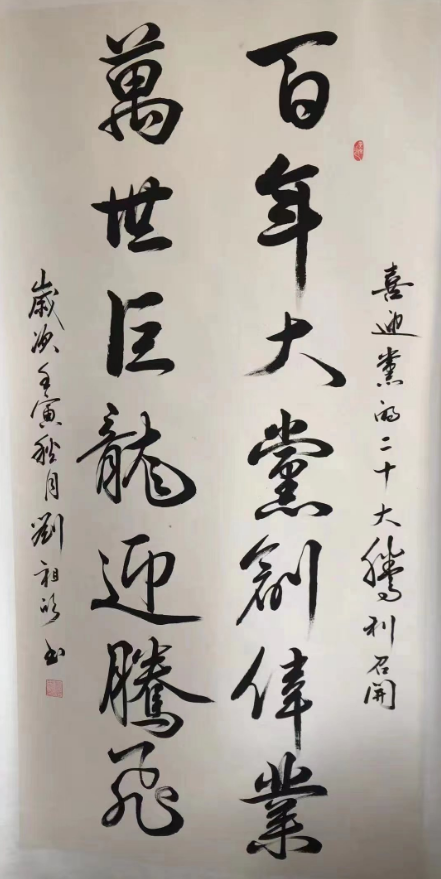 喜迎黨的二十大勝利召開
百年大黨創偉業
萬世巨龍迎騰飛
歲次壬寅秋月劉祖書